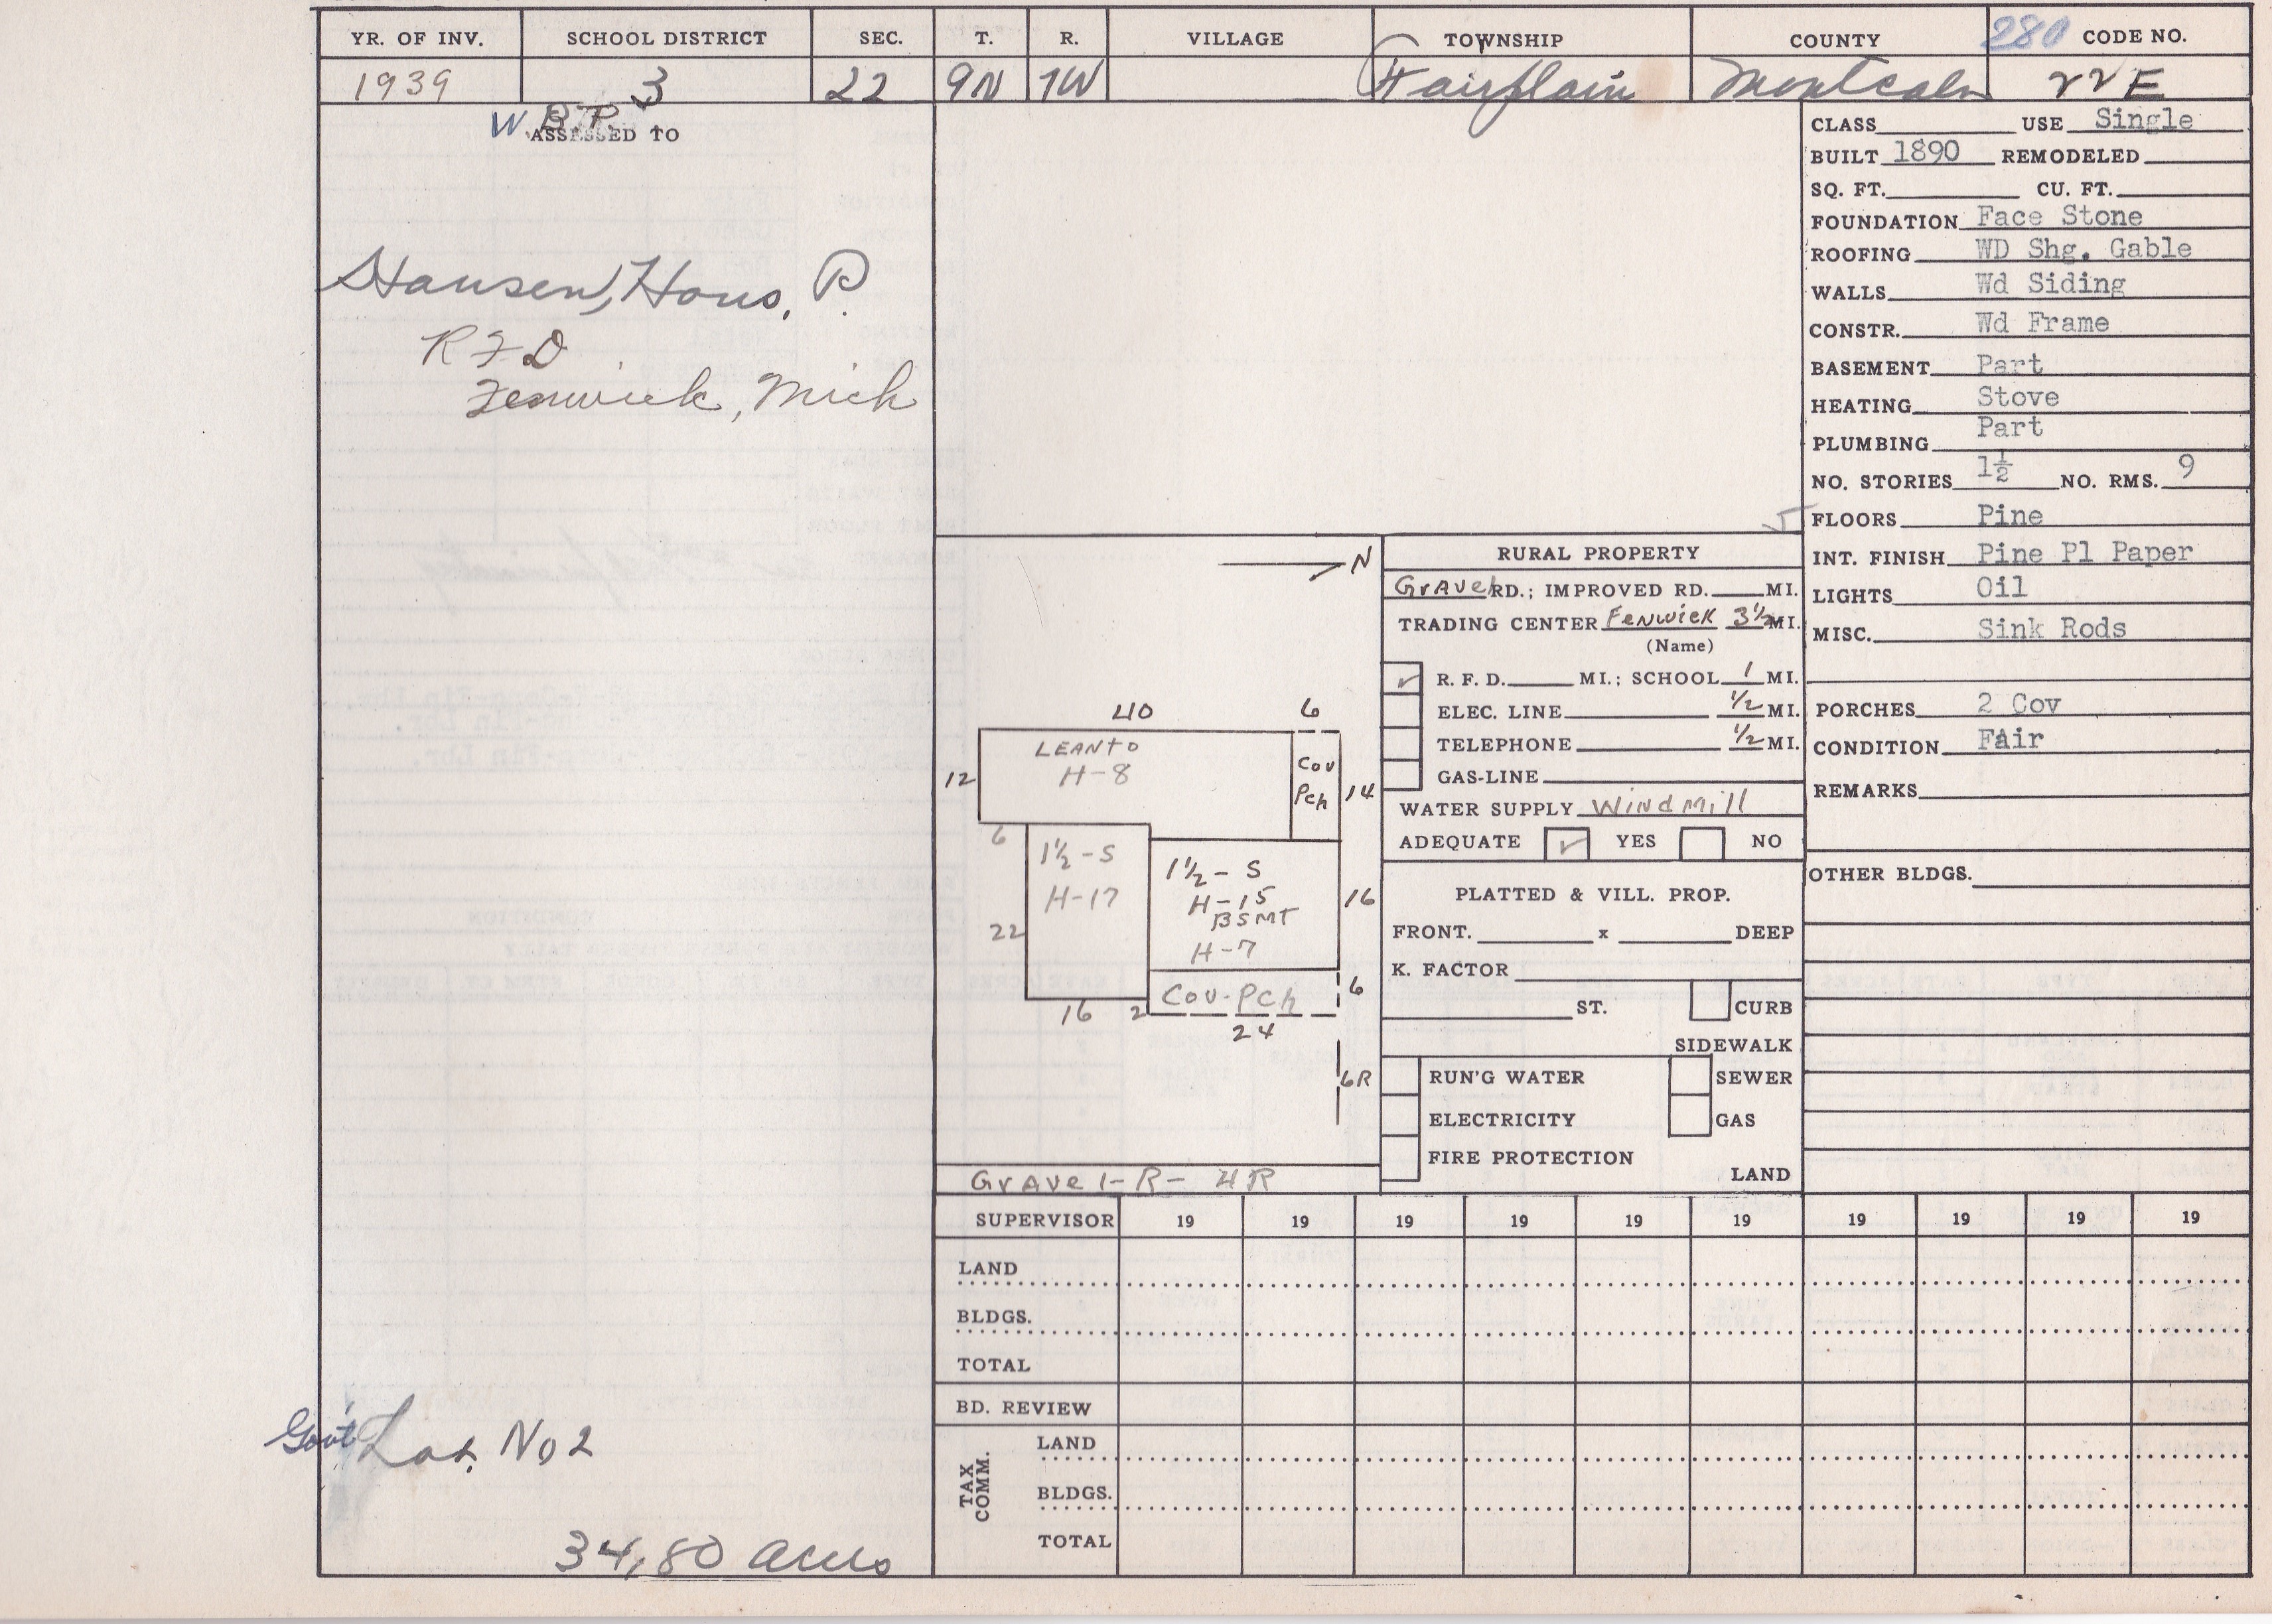 YR. OF INV. SCHOOL DISTRICT SEC. T. R. VILLAGE TOWNSHIP COUNTY 280 CODE NO.
1939 3 22 9N 7W Fairplain Montcalm 22E
W B.P.
ASSESSED TO
Hansen, Hans, P.
R F D
Fenwick, Mich
Gov't Lot No 2
34.80 acres
N
40 6
LEANTO
H-8
Cov
Pch
12 14
6
1½-S
H-17
1½-S
H-15
BSMT
H-7
16
22
Cov-Pch 6
16 2 24
6R
Gravel-R- 4R
RURAL PROPERTY
Gravel RD.; IMPROVED RD. MI.
TRADING CENTER Fenwick 3½ MI.
(Name)
R. F. D. MI.; SCHOOL 1 MI.
ELEC. LINE ½ MI.
TELEPHONE ½ MI.
GAS-LINE
WATER SUPPLY Windmill
ADEQUATE YES NO
PLATTED & VILL. PROP.
FRONT. x DEEP
K. FACTOR
ST. CURB
SIDEWALK
RUN'G WATER SEWER
ELECTRICITY GAS
FIRE PROTECTION
LAND
CLASS USE Single
BUILT 1890 REMODELED
SQ. FT. CU. FT.
FOUNDATION Face Stone
ROOFING WD Shg. Gable
WALLS Wd Siding
CONSTR. Wd Frame
BASEMENT Part
HEATING Stove
PLUMBING Part
NO. STORIES 1½ NO. RMS. 9
FLOORS Pine
INT. FINISH Pine Pl Paper
LIGHTS Oil
MISC. Sink Rods
PORCHES 2 Cov
CONDITION Fair
REMARKS
OTHER BLDGS.
SUPERVISOR 19 19 19 19 19 19 19 19 19 19
LAND
BLDGS.
TOTAL
BD. REVIEW
TAX COMM.
LAND
BLDGS.
TOTAL